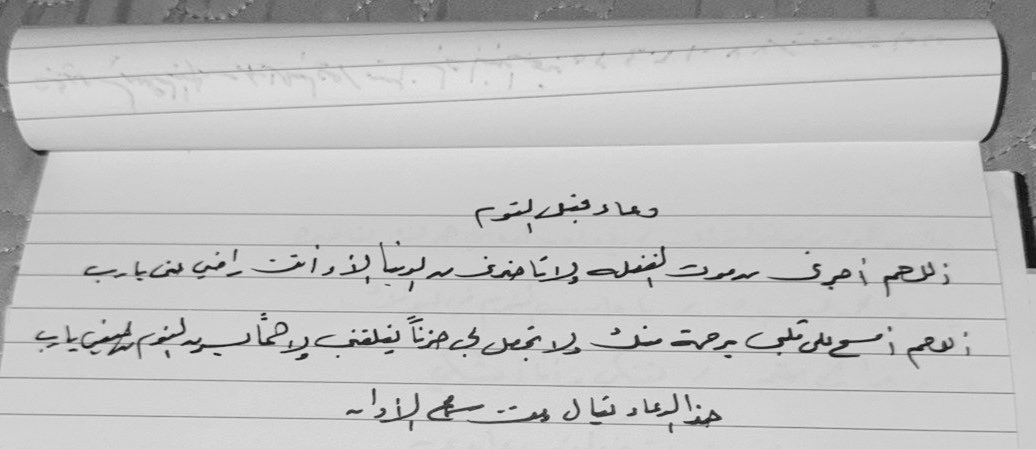 دعاء قبل النوم
اللهم أجرني من موت الغفله ولا تأخذني من الدنيا إلا وأنت راضي عني يارب
اللهم أمسح على قلبي برحمة منك ولا تجعل لي حزناً يقلقني ولا هماً يسرق النوم يارب
هذا الدعاء يقال وقت سماع الأذان